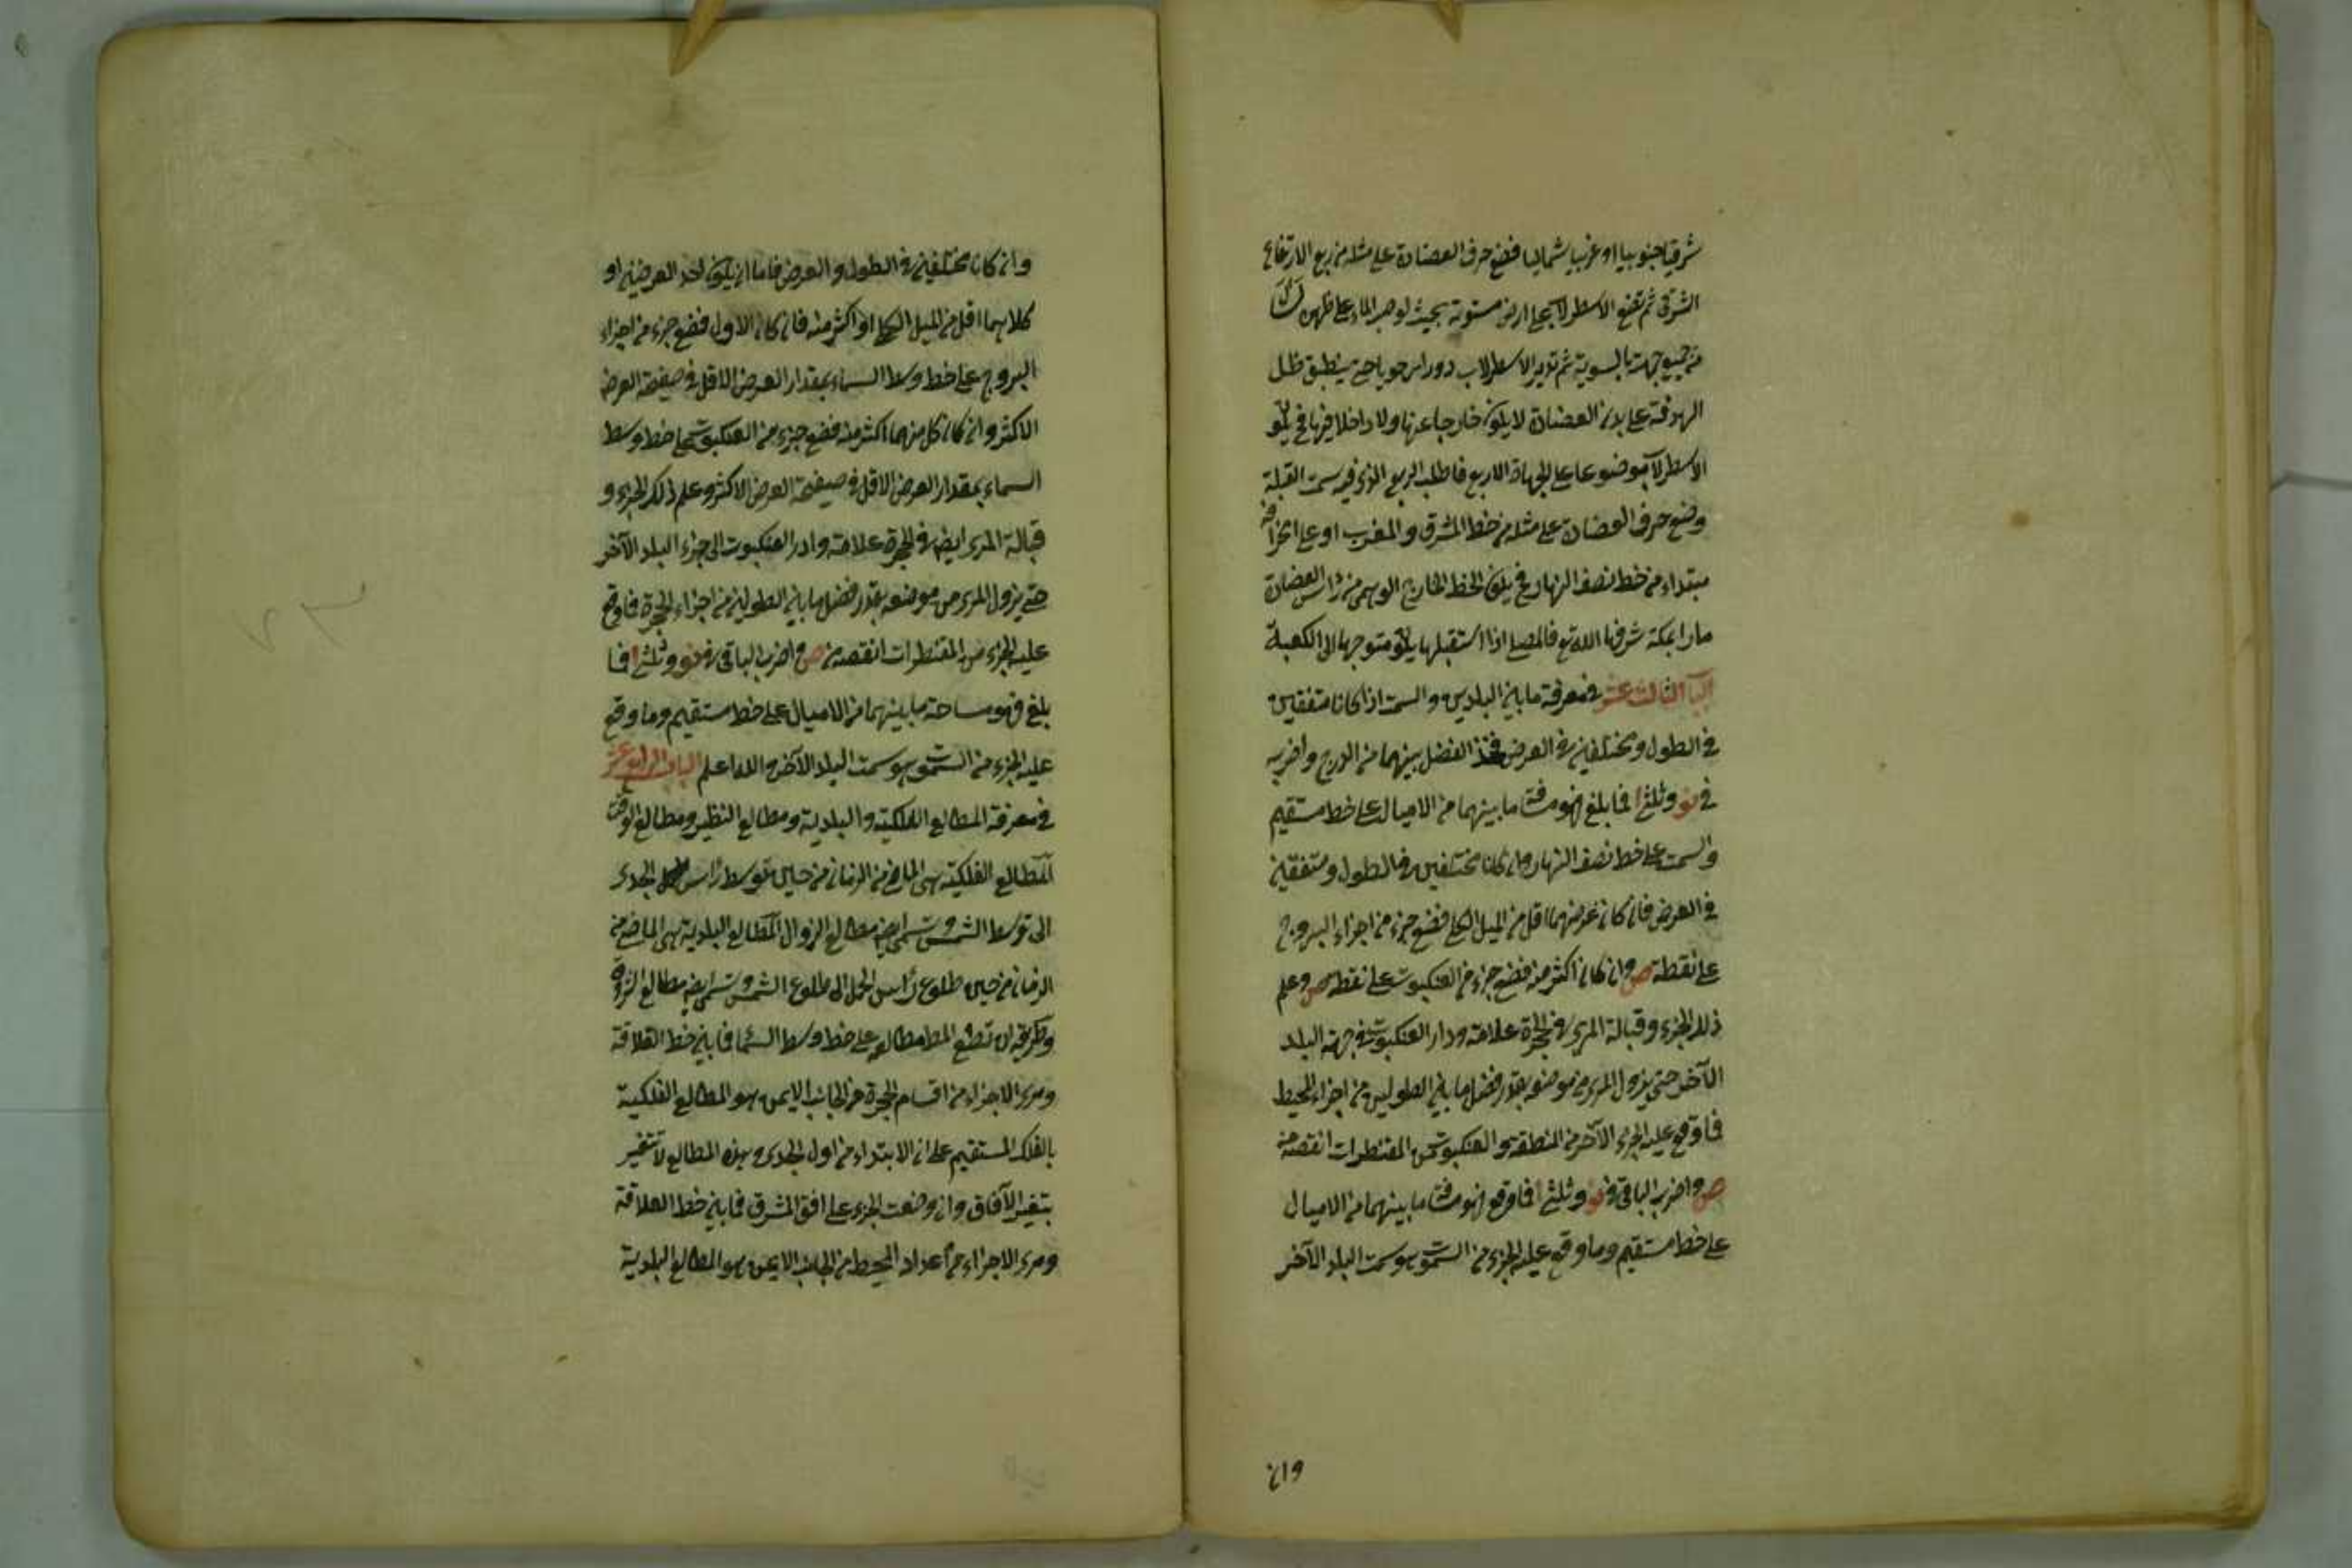 شرقيا جنوبيا او غربيا شماليا فضع حرف العضادة على مثله من ربع الارتفاع
الشرقى ثم تضع الاسطرلاب على ارض مستوية بحيث لو صب الماء على ظهره سال
من جميع جهته بالسوية ثم تدير الاسطرلاب دورا رحويا حتى ينطبق ظل
الهدفة على بدن العضادة لا يكون خارجا عنها ولا داخلا فيها فح يكون
الاسطرلاب موضوعا على الجهات الاربع فاطلب الربع الذى فيه سمت القبلة
وضع حرف العضادة على مثله من خط المشرق والمغرب او على انحرافه
مبتداء من خط نصف النهار فح يكون الخط الخارج الوهمى من راس العضادة
مارا بمكة شرفها الله تع فالمصلى اذا استقبلها يكون متوجها الى الكعبة
الباب الثالث عشر فى معرفة ما بين البلدين والسمت اذا كانا متفقين
فى الطول ومختلفين فى العرض فخذ الفضل بينهما من الدرج واضربه
فى نو وثلثا فما بلغ فهو مسافة ما بينهما من الاميال على خط مستقيم
والسمت على خط نصف النهار وان كانا مختلفين فى الطول ومتفقين
فى العرض فان كان عرضهما اقل من الميل الكلى فضع جزء من اجزاء البروج
على نقطة ص وان كان اكثر منه فضع جزء من العنكبوت على نقطة ص وعلم
ذلك الجزء وقبالة المرى فى الحجرة علامة ودار العنكبوت فى جهة البلد
الآخر حتى يزول المرى من موضعه بقدر فضل ما بين الطولين من اجزاء المحيط
فما وقع عليه الجزء الآخر من المنطقة والعنكبوت من المقنطرات انقصه من
ص واضرب الباقى فى نو وثلثا فما وقع فهو مسافة ما بينهما من الاميال
على خط مستقيم وما وقع عليه الجزء من السموت هو سمت البلد الآخر
وان
وان كانا مختلفين فى الطول والعرض فاما ان يكون احد العرضين او
كلاهما اقل من الميل الكلى او اكثر منه فان كان الاول فضع جزء من اجزاء
البروج على خط وسط السماء بمقدار العرض الاقل فى صفيحة العرض
الاكثر وان كان كل منهما اكثر منه فضع جزء من العنكبوت على خط وسط
السماء بمقدار العرض الاقل فى صفيحة العرض الاكثر وعلم ذلك الجزء و
قبالة المرى ايضا فى الحجرة علامة وادر العنكبوت الى جهة البلد الآخر
حتى يزول المرى من موضعه بقدر فضل ما بين الطولين من اجزاء الحجرة فما وقع
عليه الجزء من المقنطرات انقصه من ص واضرب الباقى فى نو وثلثا فما
بلغ فهو مساحة ما بينهما من الاميال على خط مستقيم وما وقع
عليه الجزء من السموت هو سمت البلد الآخر والله اعلم الباب الرابع عشر
فى معرفة المطالع الفلكية والبلدية ومطالع النظير ومطالع الوقت
المطالع الفلكية هى الماضى من الزمان من حين توسط راس الجدى
الى توسط الشمس وتسمى ايضا مطالع الزوال المطالع البلدية هى الماضى من
الزمان من حين طلوع راس الحمل الى طلوع الشمس وتسمى ايضا مطالع الشروق
وطريقه ان تضع المط مطالعه على خط وسط السماء فما بين خط العلاقة
ومرى الاجزاء من اقسام الحجرة من الجانب الايمن هو المطالع الفلكية
بالفلك المستقيم على ان الابتداء من اول الجدى وهذه المطالع لا تتغير
بتغير الآفاق وان وضعت الجزء على افق المشرق فما بين خط العلاقة
ومرى الاجزاء من اعداد المحيط من الجانب الايمن هو المطالع البلدية